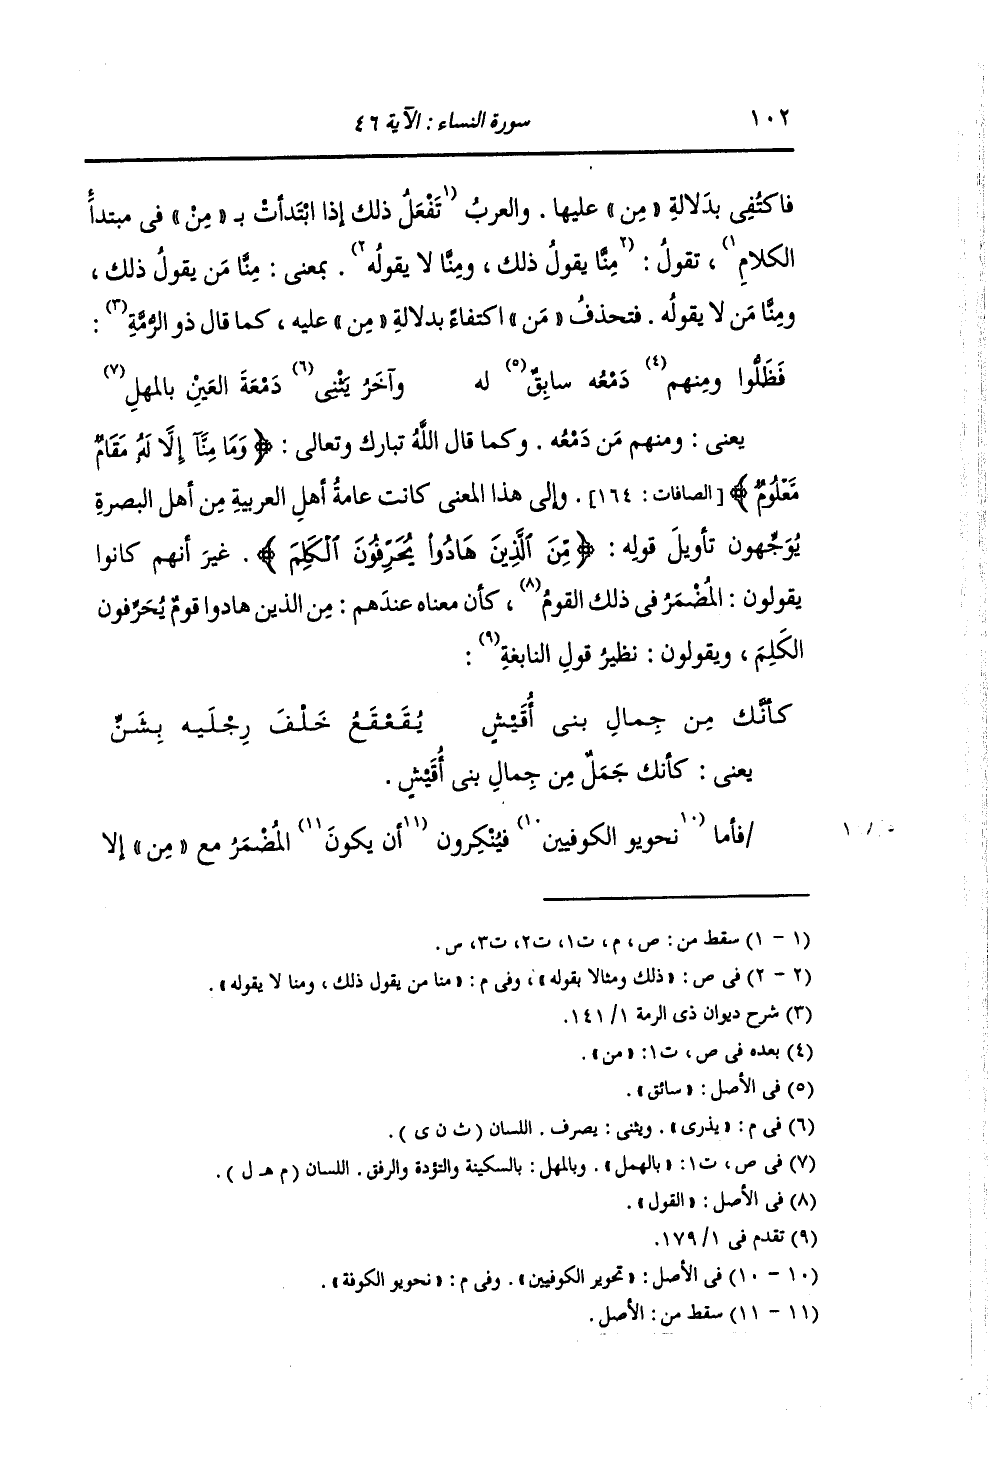 ١٠٢ سورة النساء : الآية ٤٦
فاكتُفِى بدَلالةِ « مِن » عليها . والعربُ (١تَفْعَلُ ذلك إذا ابْتَدأتْ بـ « مِنْ » فى مبتدأَ
الكلامِ١) ، تقولُ : (٢مِنَّا يقولُ ذلك ، ومِنَّا لا يقولُه٢) . بمعنى : مِنَّا مَن يقولُ ذلك ،
ومِنَّا مَن لا يقولُه . فتحذفُ « مَن » اكتفاءً بدلالةِ « مِن » عليه ، كما قال ذو الرُّمَّةِ(٣) :
فَظَلُّوا ومِنهم(٤) دَمْعُه سابِقٌ(٥) له وآخَرُ يَثْنِى(٦) دَمْعَةَ العَيْنِ بالمهلِ(٧)
يعنى : ومنهم مَن دَمْعُه . وكما قال اللَّهُ تبارك وتعالى : ﴿ وَمَا مِنَّآ إِلَّا لَهُۥ مَقَامٌ
مَّعْلُومٌ ﴾ [ الصافات : ١٦٤] . وإلى هذا المعنى كانت عامةُ أهلِ العربيةِ مِن أهل البصرةِ
يُوَجِّهون تأويلَ قولِه : ﴿ مِّنَ ٱلَّذِينَ هَادُواْ يُحَرِّفُونَ ٱلْكَلِمَ ﴾ . غيرَ أنهم كانوا
يقولون : المُضْمَرُ فى ذلك القومُ(٨) ، كأن معناه عندَهم : مِن الذين هادوا قومٌ يُحَرِّفون
الكَلِمَ ، ويقولون : نظيرُ قولِ النابغةِ(٩) :
كأنَّك مِن جِمالِ بنى أُقَيْشٍ يُقَعْقَعُ خَلْفَ رِجْلَيه بِشَنٍّ
يعنى : كأنك جَمَلٌ مِن جِمالِ بنى أُقَيْشٍ .
/فأما (١٠نحويو الكوفيين١٠) فيُنْكِرون (١١أن يكونَ١١) المُضْمَرُ مع « مِن » إلا
(١ - ١) سقط من : ص ، م ، ت١، ت٢، ت٣، س .
(٢ - ٢) فى ص : « ذلك ومثالا بقوله » ، وفى م : « منا من يقول ذلك ، ومنا لا يقوله » .
(٣) شرح ديوان ذى الرمة ١/ ١٤١.
(٤) بعده فى ص ، ت١: « من » .
(٥) فى الأصل : « سائق » .
(٦) فى م : « يذرى » . ويثنى : يصرف . اللسان ( ث ن ى ) .
(٧) فى ص ، ت١: « بالهمل » . وبالمهل : بالسكينة والتؤدة والرفق . اللسان ( م هـ ل ) .
(٨) فى الأصل : « القول » .
(٩) تقدم فى ١/ ١٧٩.
(١٠ - ١٠) فى الأصل : « تحوير الكوفيين » . وفى م : « نحويو الكوفة » .
(١١ - ١١) سقط من : الأصل .